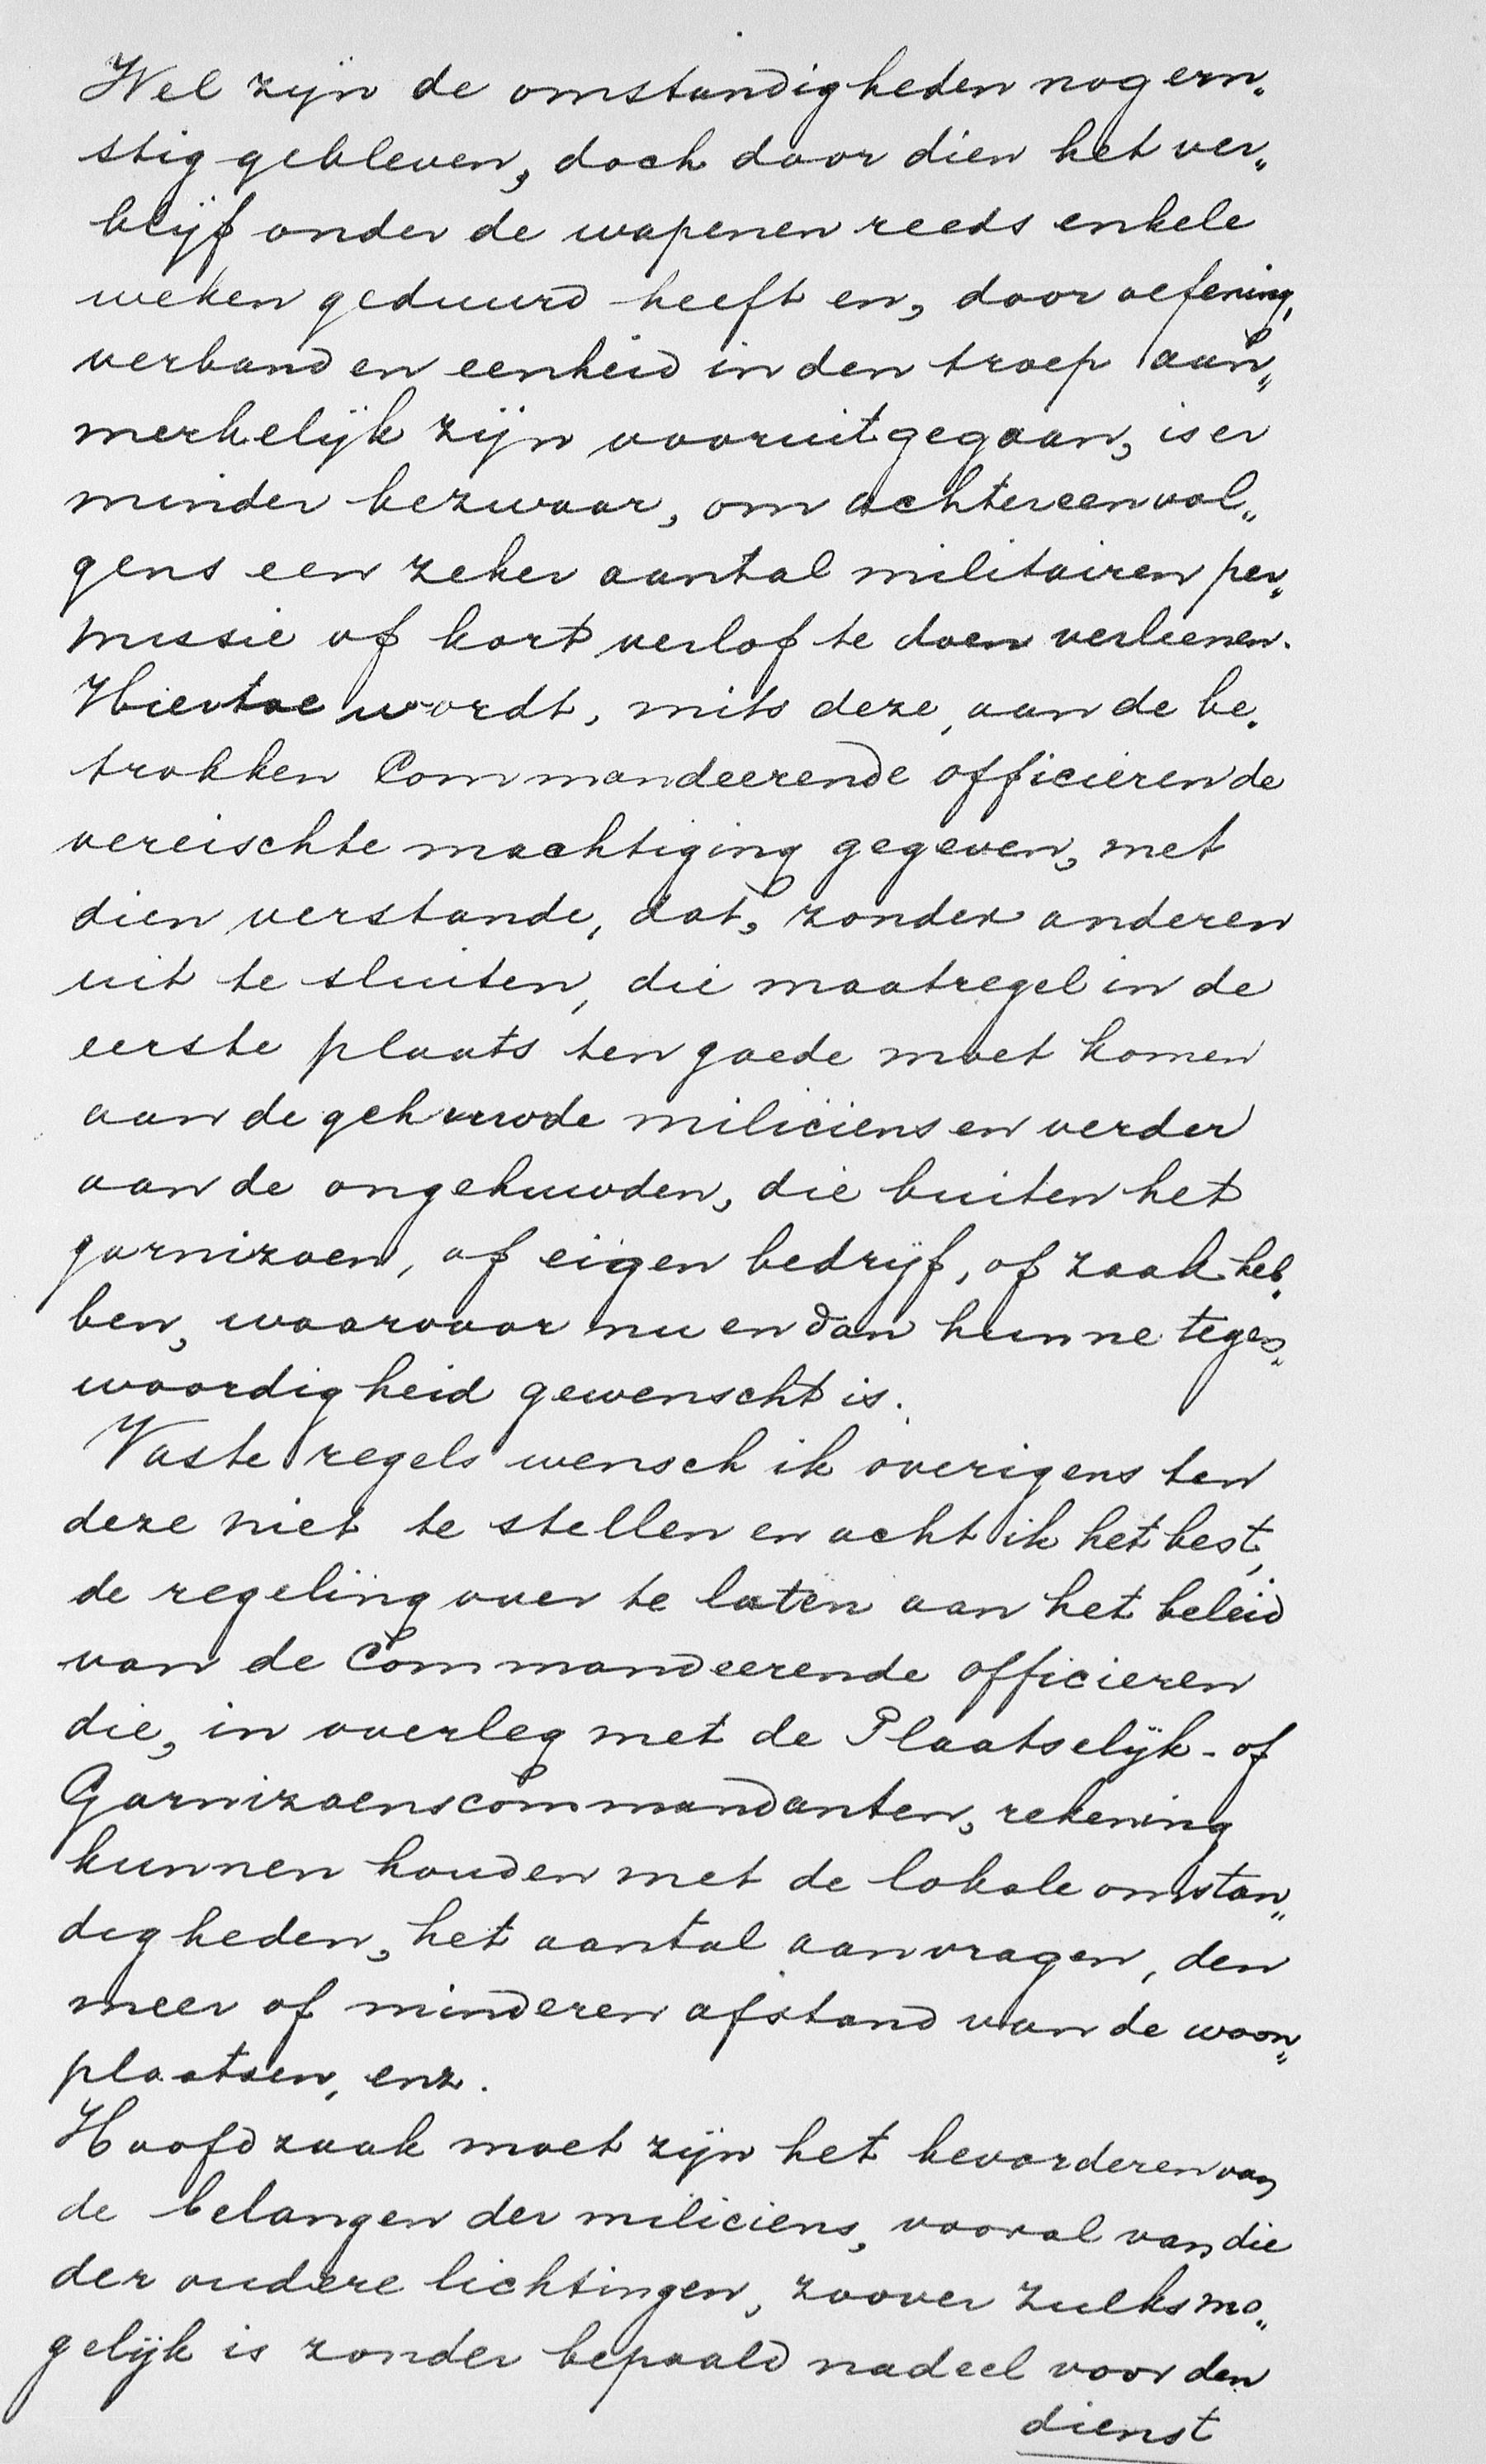 Wel zijn de omstandigheden nog ern„
stig gebleven, doch door dien het ver„
blijf onder de wapenen reeds enkele
weken geduurd heeft en, door oefening,
verband en eenheid in den troep aan„
merkelijk zijn vooruitgegaan, is er
minder bezwaar, om achtereenvol„
gens een zeker aantal militairen per„
missie of kort verlof te doen verleenen.
Hiertoe wordt, mits deze, aan de be„
trokken Commandeerende officieren de
vereischte machtiging gegeven, met
dien verstande, dat, zonder anderen
uit te sluiten, die maatregel in de
eerste plaats ten goede moet komen
aan de gehuwde miliciens en verder
aan de ongehuwden, die buiten het
garnizoen, of eigen bedrijf, of zaak heb„
ben, waarvoor nu en dan hunne tegen„
woordigheid gewenscht is.
Vaste regels wensch ik overigens ten
deze niet te stellen en acht ik het best,
de regeling over te laten aan het beleid
van de Commandeerende officieren
die, in overleg met de Plaatselijk- of
Garnizoenscommandanten, rekening
kunnen houden met de lokale omstan„
digheden, het aantal aanvragen, den
meer of minderen afstand van de woon„
plaatsen, enz.
Hoofdzaak moet zijn het bevorderen van
de belangen der miliciens, vooral van die
der oudere lichtingen, zoover zulks mo„
gelijk is zonder bepaald nadeel voor den
dienst